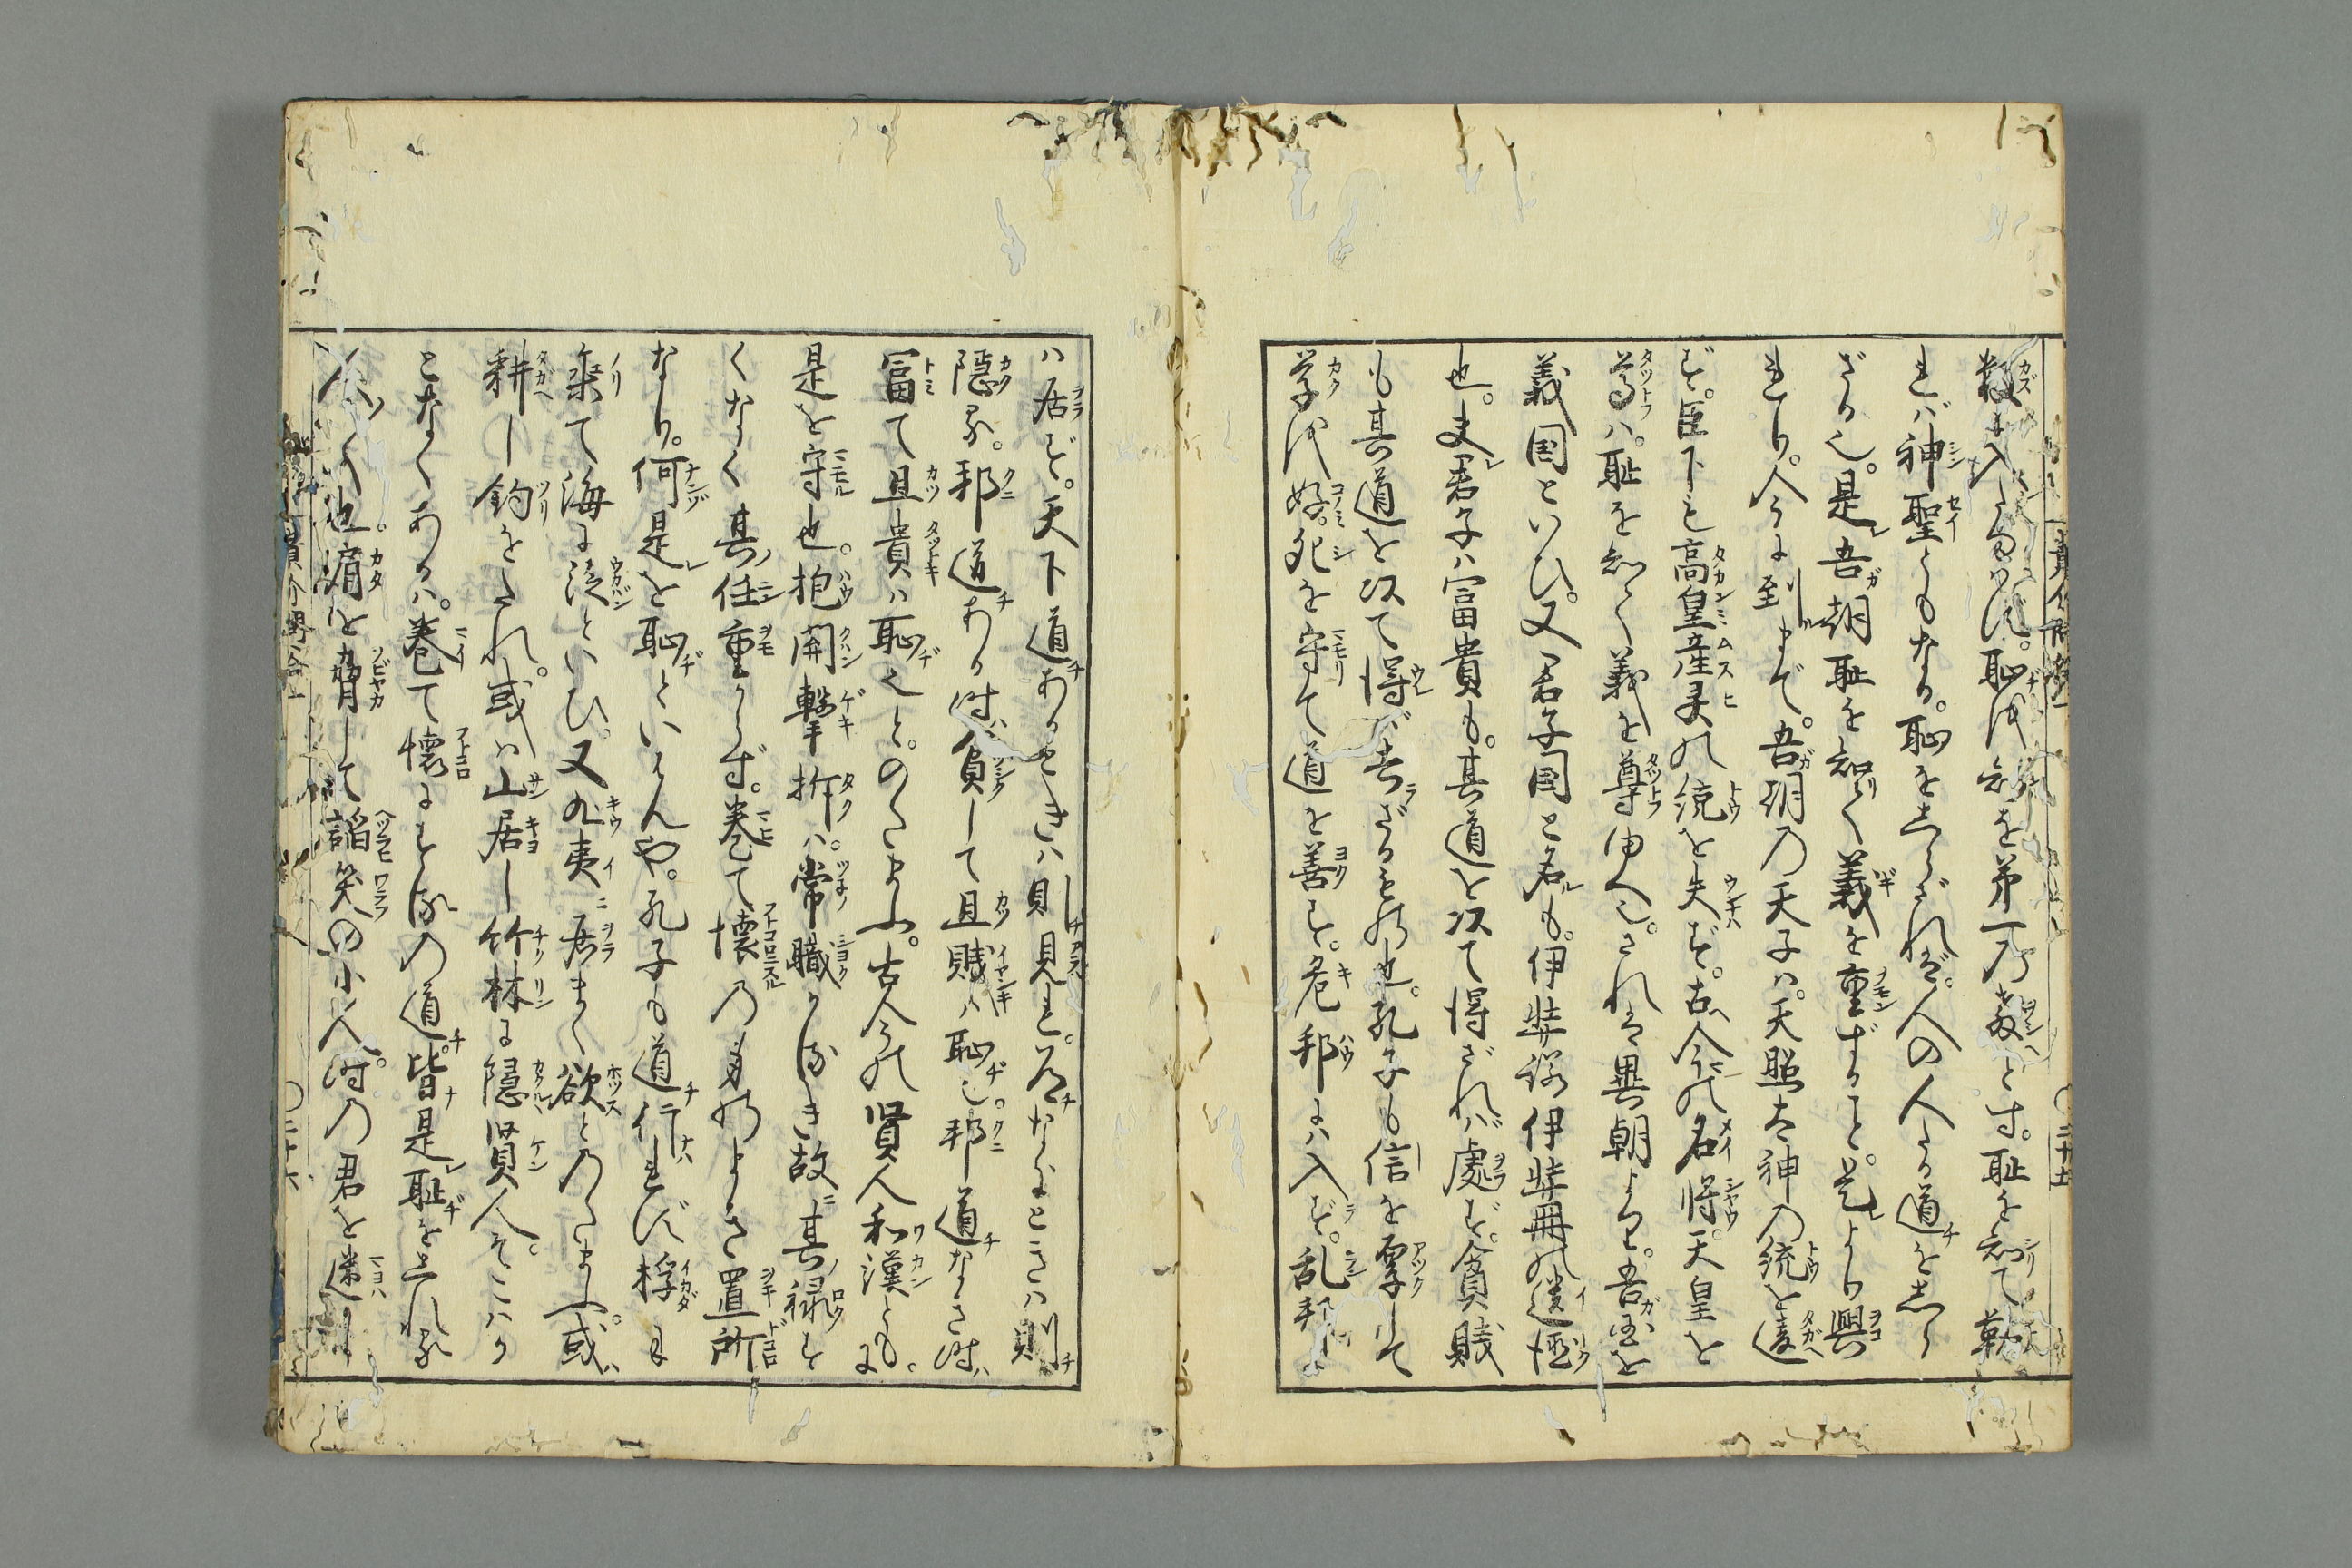 数に入たまはず。恥を知を第一乃教とす。恥を知て勤
れば神聖ともなる。恥をしらざれば。人の人たる道をしら
ざる也。是吾朝恥を知て義を重ずること。是より興
れり。今に到まで。吾朝乃天子は。天照太神乃統を違へ
ず。臣下も高皇産灵の統を失ず。古今の名将。天皇を
尊ふは。恥を知て義を尊ゆへ也。されば異朝よりも。吾国を
義国といひ。又君子国と名も。伊弉諾伊弉冊の遺徳
也。夫君子は富貴も。其道を以て得ざれば處ず。貧賤
も其道を以て得ば去ざるもの也。孔子も信を厚して
学を好。死を守て道を善す。危邦には入ず。乱邦に
は居ず。天下道あるときは則見れ。道なきときは則
隠る。邦道ある時。貧して且賤は恥也。邦道なき時は
富て且貴は恥也と。のたまふ。古今の賢人和漢ともに。
是を守也。抱関撃柝は。常職かるき故。其禄す
くなく其任重からず。巻て懐乃身のよき置所
なり。何是を恥といはんや。孔子も道行れず桴に
乗て海に泛といひ。又九夷に居まく欲とのたまふ。或は
耕し釣をたれ。或は山居し竹林に隠賢人。そこばく
となくあるは。巻て懐にするの道。皆是恥をしれる
人〻也。肩を脅して諂笑の小人。時の君を迷はし